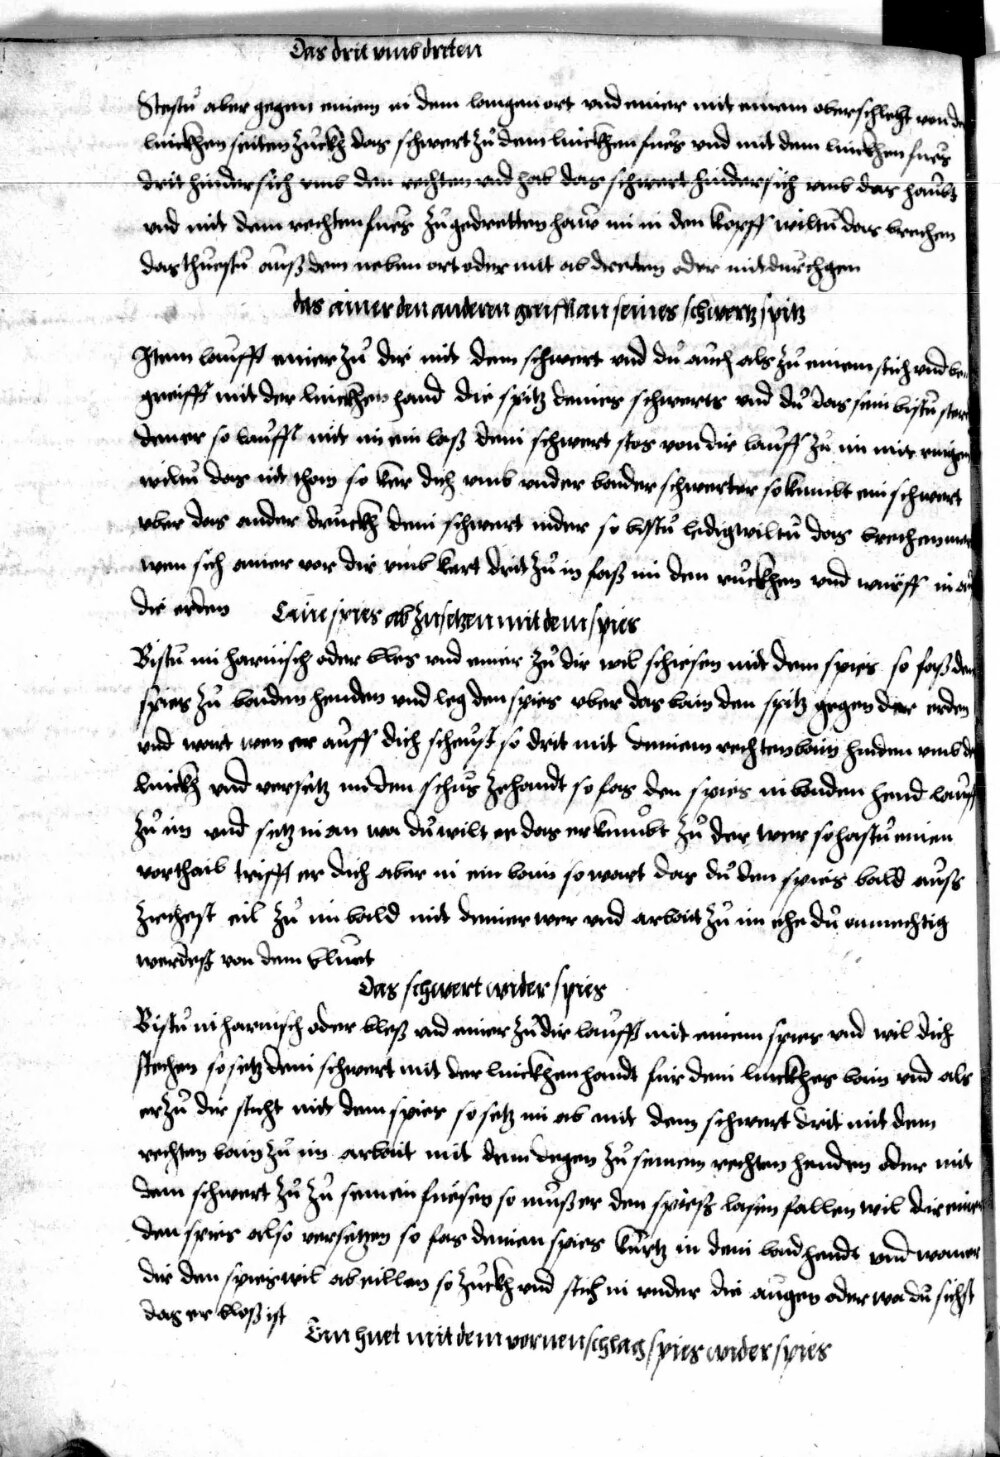 Das drit umb dreten
Stestu aber gegen einem in dem langen ort und einer mit einem oberschlecht von der
linckhen seiten zuckh das schwert zu dem linckhen fues und mit dem linckhen fues
drit hinder sich umb den rechten und hab das schwert hinder sich umb das haubt
und mit dem rechten fues zu gedretten haw im in den kopff wiltu das brechen
das thuestu auß dem neben ort oder mit ab dreten oder mit durchgen
das ainer den anderen greifft an seines schwertz spitz
Item laufft einer zu dir mit dem schwert und du auch als zu einem stich und be
greifft mit der linckhen hand die spitz deines schwerts und du das sein bistu sterckh
dener so laufft mit im ein laß dein schwert stos von dir lauff zu im mit ringen
wiltu das nit thon so ker dich umb under baider schwerter so kumbt ein schwert
uber das ander druckh dein schwert nider so bistu ledig wiltu das brechen
wen sich ainer vor dir umb kert drit zu im faß im den ruckhen und wurff in an
die erden Ein spies ab zu setzen mit dem spies
Bistu im harnisch oder blos und einer zu dir wil schiesen mit dem spies so faß den
spies zu baiden henden und leg den spies uber das bain den spitz gegen der erden
und wart wen er auff dich scheust so drit mit deinem rechten bain hinden umb den
linckh und versetz im den schus zehandt so fas den spies in baiden hend lauff
zu im und setz im an wa du wilt er das er kumbt zu der wer so hastu einen
vorthail trifft er dich aber in ein bain so wart das du den spies bald auss
ziechest eil zu im bald mit deiner wer und arbait zu im ehe du onmechtig
werdest von dem bluet
Das schwert wider spies
Bistu in harnisch oder bloß und einer zu dir laufft mit einem spies und wil dich
stechen so setz dein schwert mit der linckhen handt fur dein linckhes bain und als
er zu dir sticht mit dem spies so setz im ab mit dem schwert drit mit dem
rechten bain zu im arbait mit dem degen zu seinem rechten henden oder mit
dem schwert zu zu seinem fuesen so muß er den spieß lasen fallen wil dir einer
den spies also versetzen so fas deinen spies kurtz in dein baid hendt und wan er
dir den spies wil ab eillen so zuckh und stich in under die augen oder wa du sichst
das er bloß ist
Ein huet mit dem vornen schlag spies wider spies